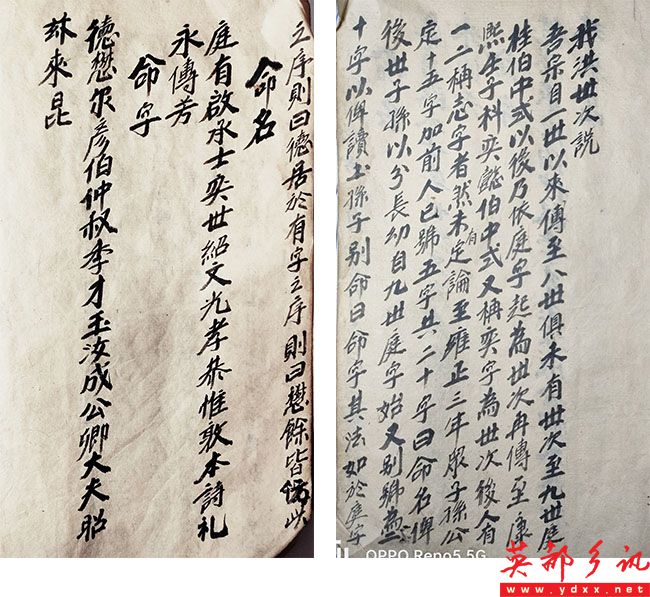 我洪世次說
吾宗自一世以來傳至八世俱未有世次至九世庭
桂伯中式以後乃依庭字起為世次再傳至康
熙壬子科奕懿伯中式又稱奕字為世次後人有
一二稱志字者然未有定論至雍正三年眾子孫公
定十五字加前人已號五字共二十字曰命名俾
後世子孫以分長幼自九世庭字始又別號為二
十字以俾讀书孫子別命曰命字其法如於庭字
之序則曰德居於有字之序則曰懋餘皆倣此
命名
庭有啟承士奕世紹文光孝恭惟敦本詩礼
永傳芳
命字
德懋尔彥伯仲叔季才玉汝成公卿大夫昭
茲來昆
OPPO Reno5 5G
英都乡讯
www.ydxx.net